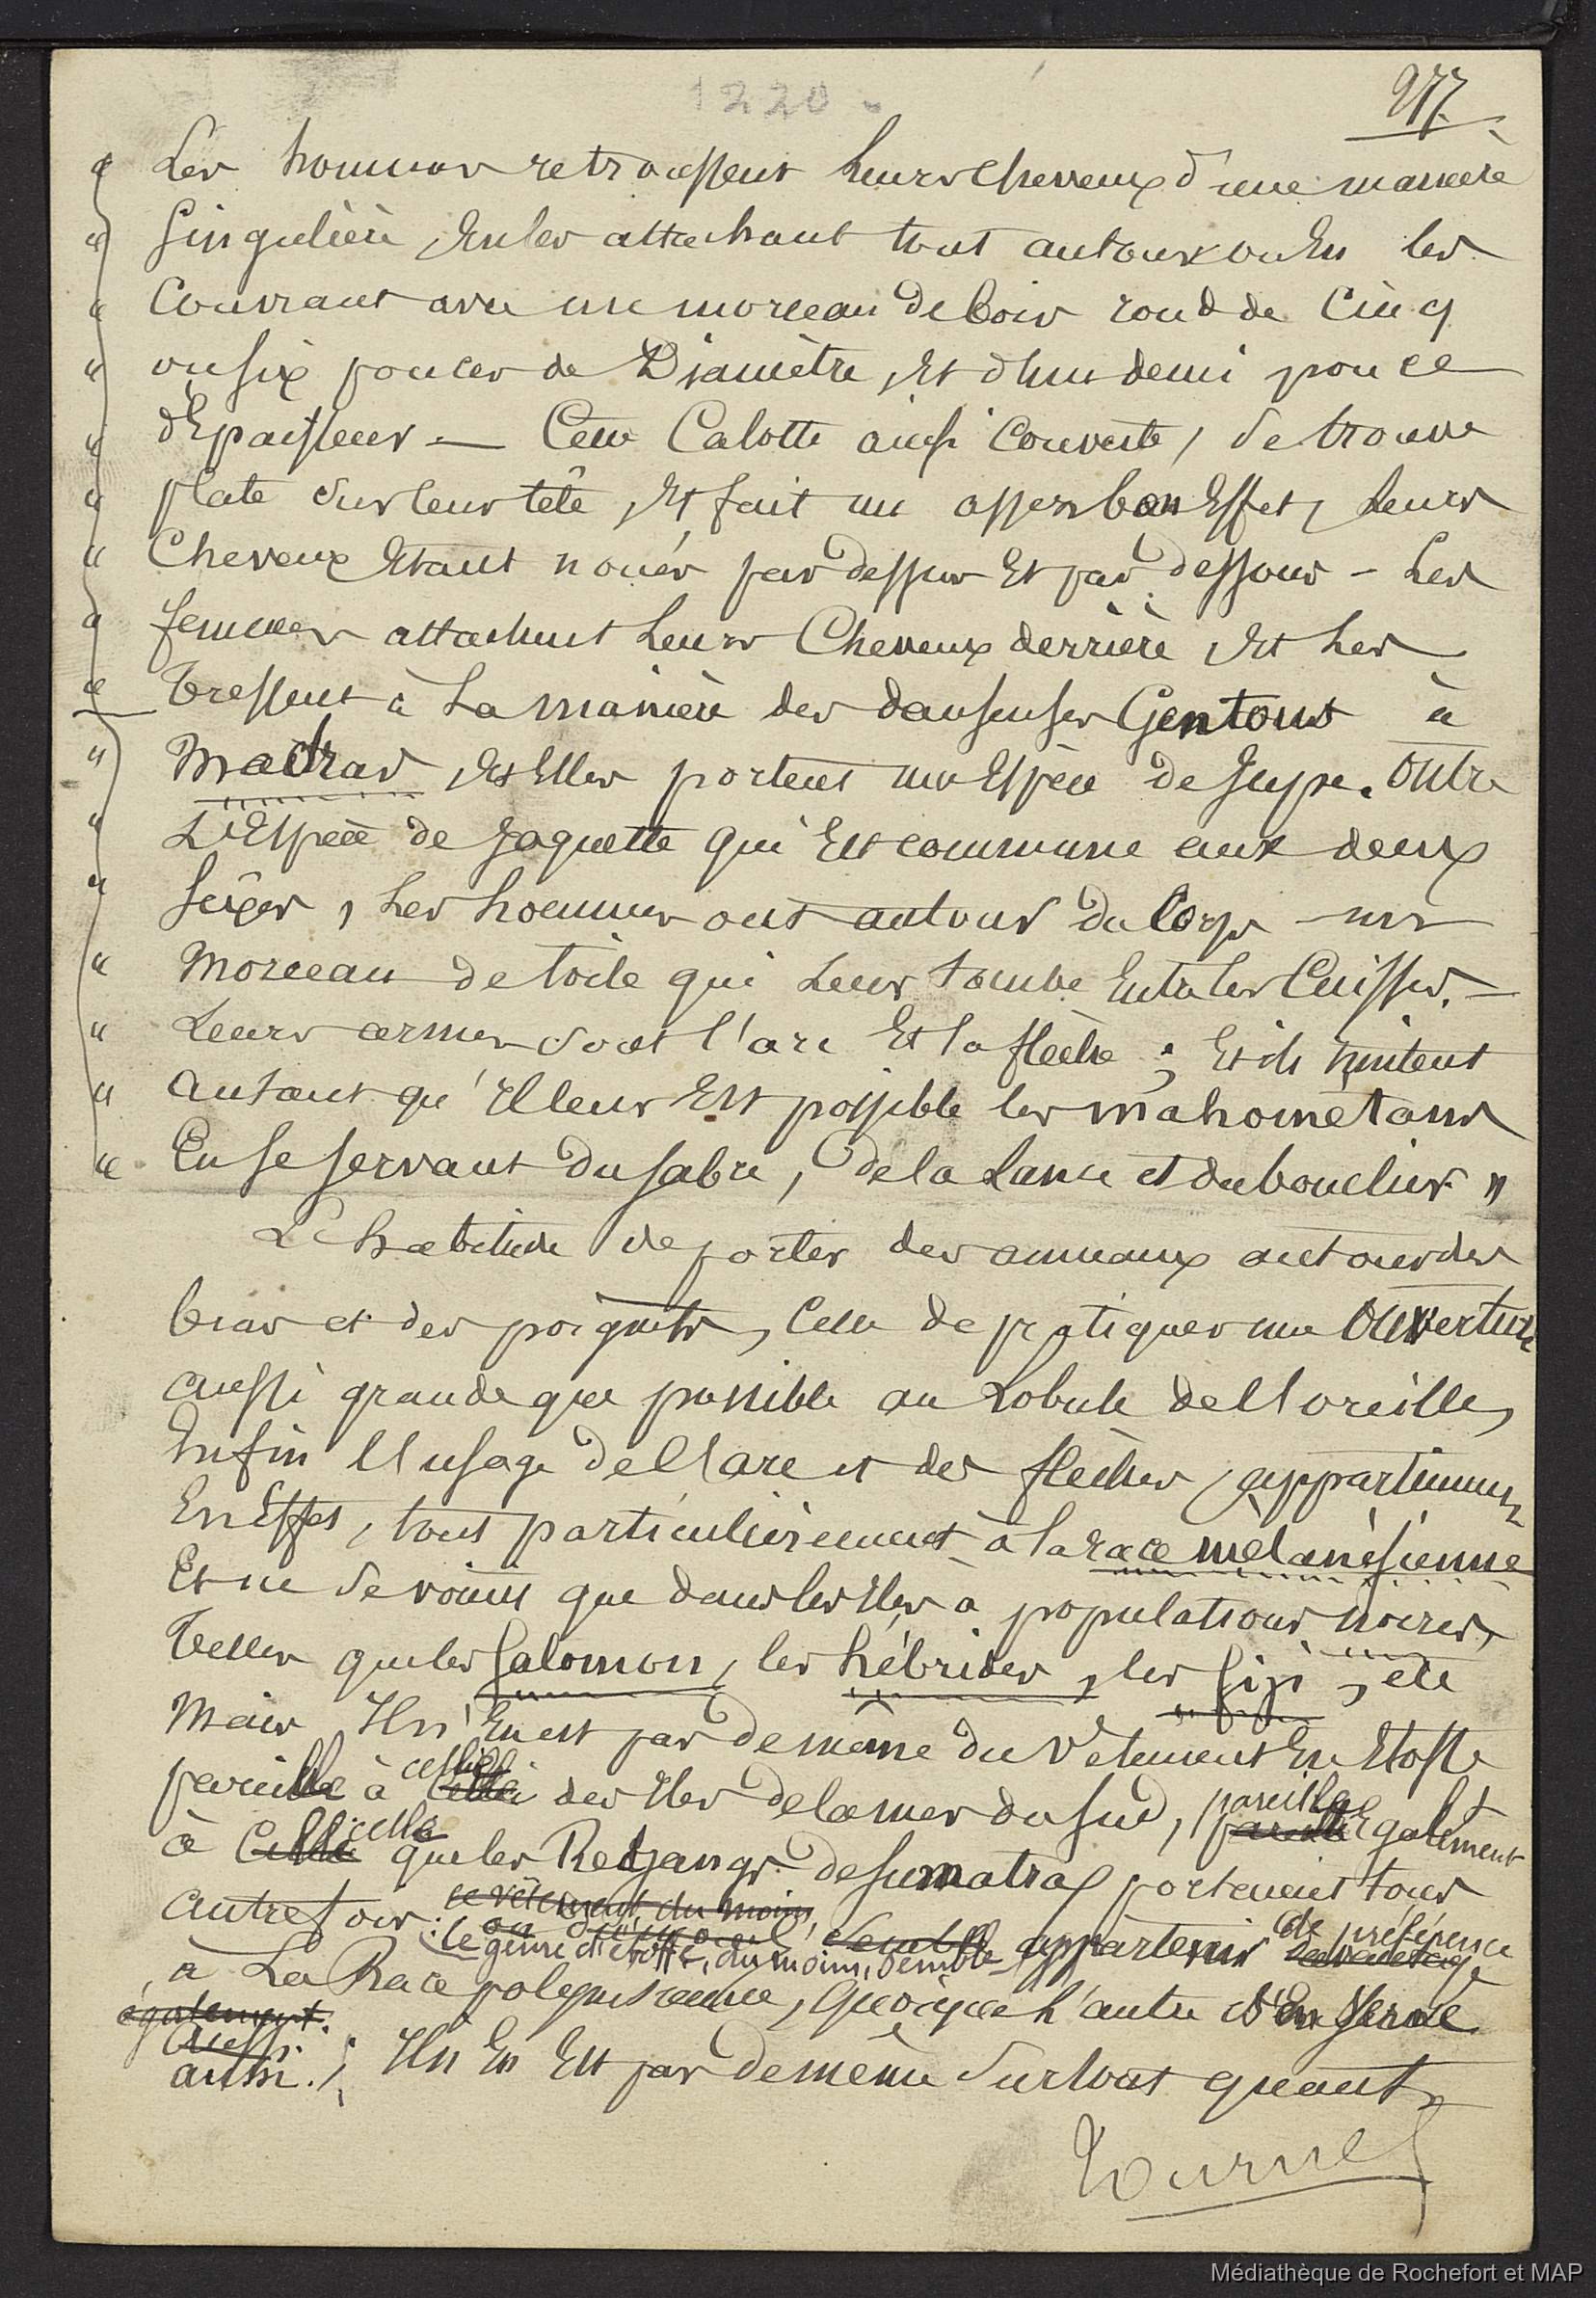 1220
977.
" Les hommes retroussent leurs cheveux d'une manière
" Singulière, En les attachant tout autour ou En les
" Couvrant avec un morceau de bois rond de Cinq
" ou six pouces de Diamètre, Et d'un demi pouce
" d'Epaisseur — Cette Calotte ainsi Couverte, Se trouve
" plate sur leur tête, Et fait un assez bon Effet, Leurs
" Cheveux Etant noués par dessus Et par dessous - Les
" femmes attachent Leurs Cheveux derrière, Et Les
" Tressent à La manière des danseuses Gentous à
" Madras, Et Elles portent une Espèce de Jupe. Outre
" L'Espèce de Jaquette qui Est commune aux deux
" Sexes, Les hommes ont autour du Corps un
" Morceau de toile qui Leur tombe Entre les Cuisses. —
" Leurs armes sont l'arc Et la flèche ; Et ils imitent
" Autant qu'Il leur Est possible les mahométans
" En se servant du sabre, de la Lance et du bouclier "
L'habitude de porter des anneaux autour des
bras et des poignets, Celle de pratiquer une Ouverture
aussi grande que possible au Lobule de l'oreille,
Enfin l'usage de l'arc et des flèches, appartiennent
En Effet, tout particulièrement à la race mélanésienne
Et ne se voient que dans les Iles à populations noires,
Telles que les Salomon, les hébrides, les fiji, etc
Mais Il n'En est pas de même du Vêtement En Etoffe
pareille à celle des Iles de la mer du Sud, pareille Egalement
à celle que les Redjangs de Sumatra portaient tous
autrefois : ce vêtement, du moins,
ce genre d'étoffe, du moins, semble appartenir de préférence
à La Race polynésienne, Quoique l'autre s'En Serve
également.
aussi.
aussi. ; Il n'En Est pas de même Surtout quant
Tournel
Médiathèque de Rochefort et MAP